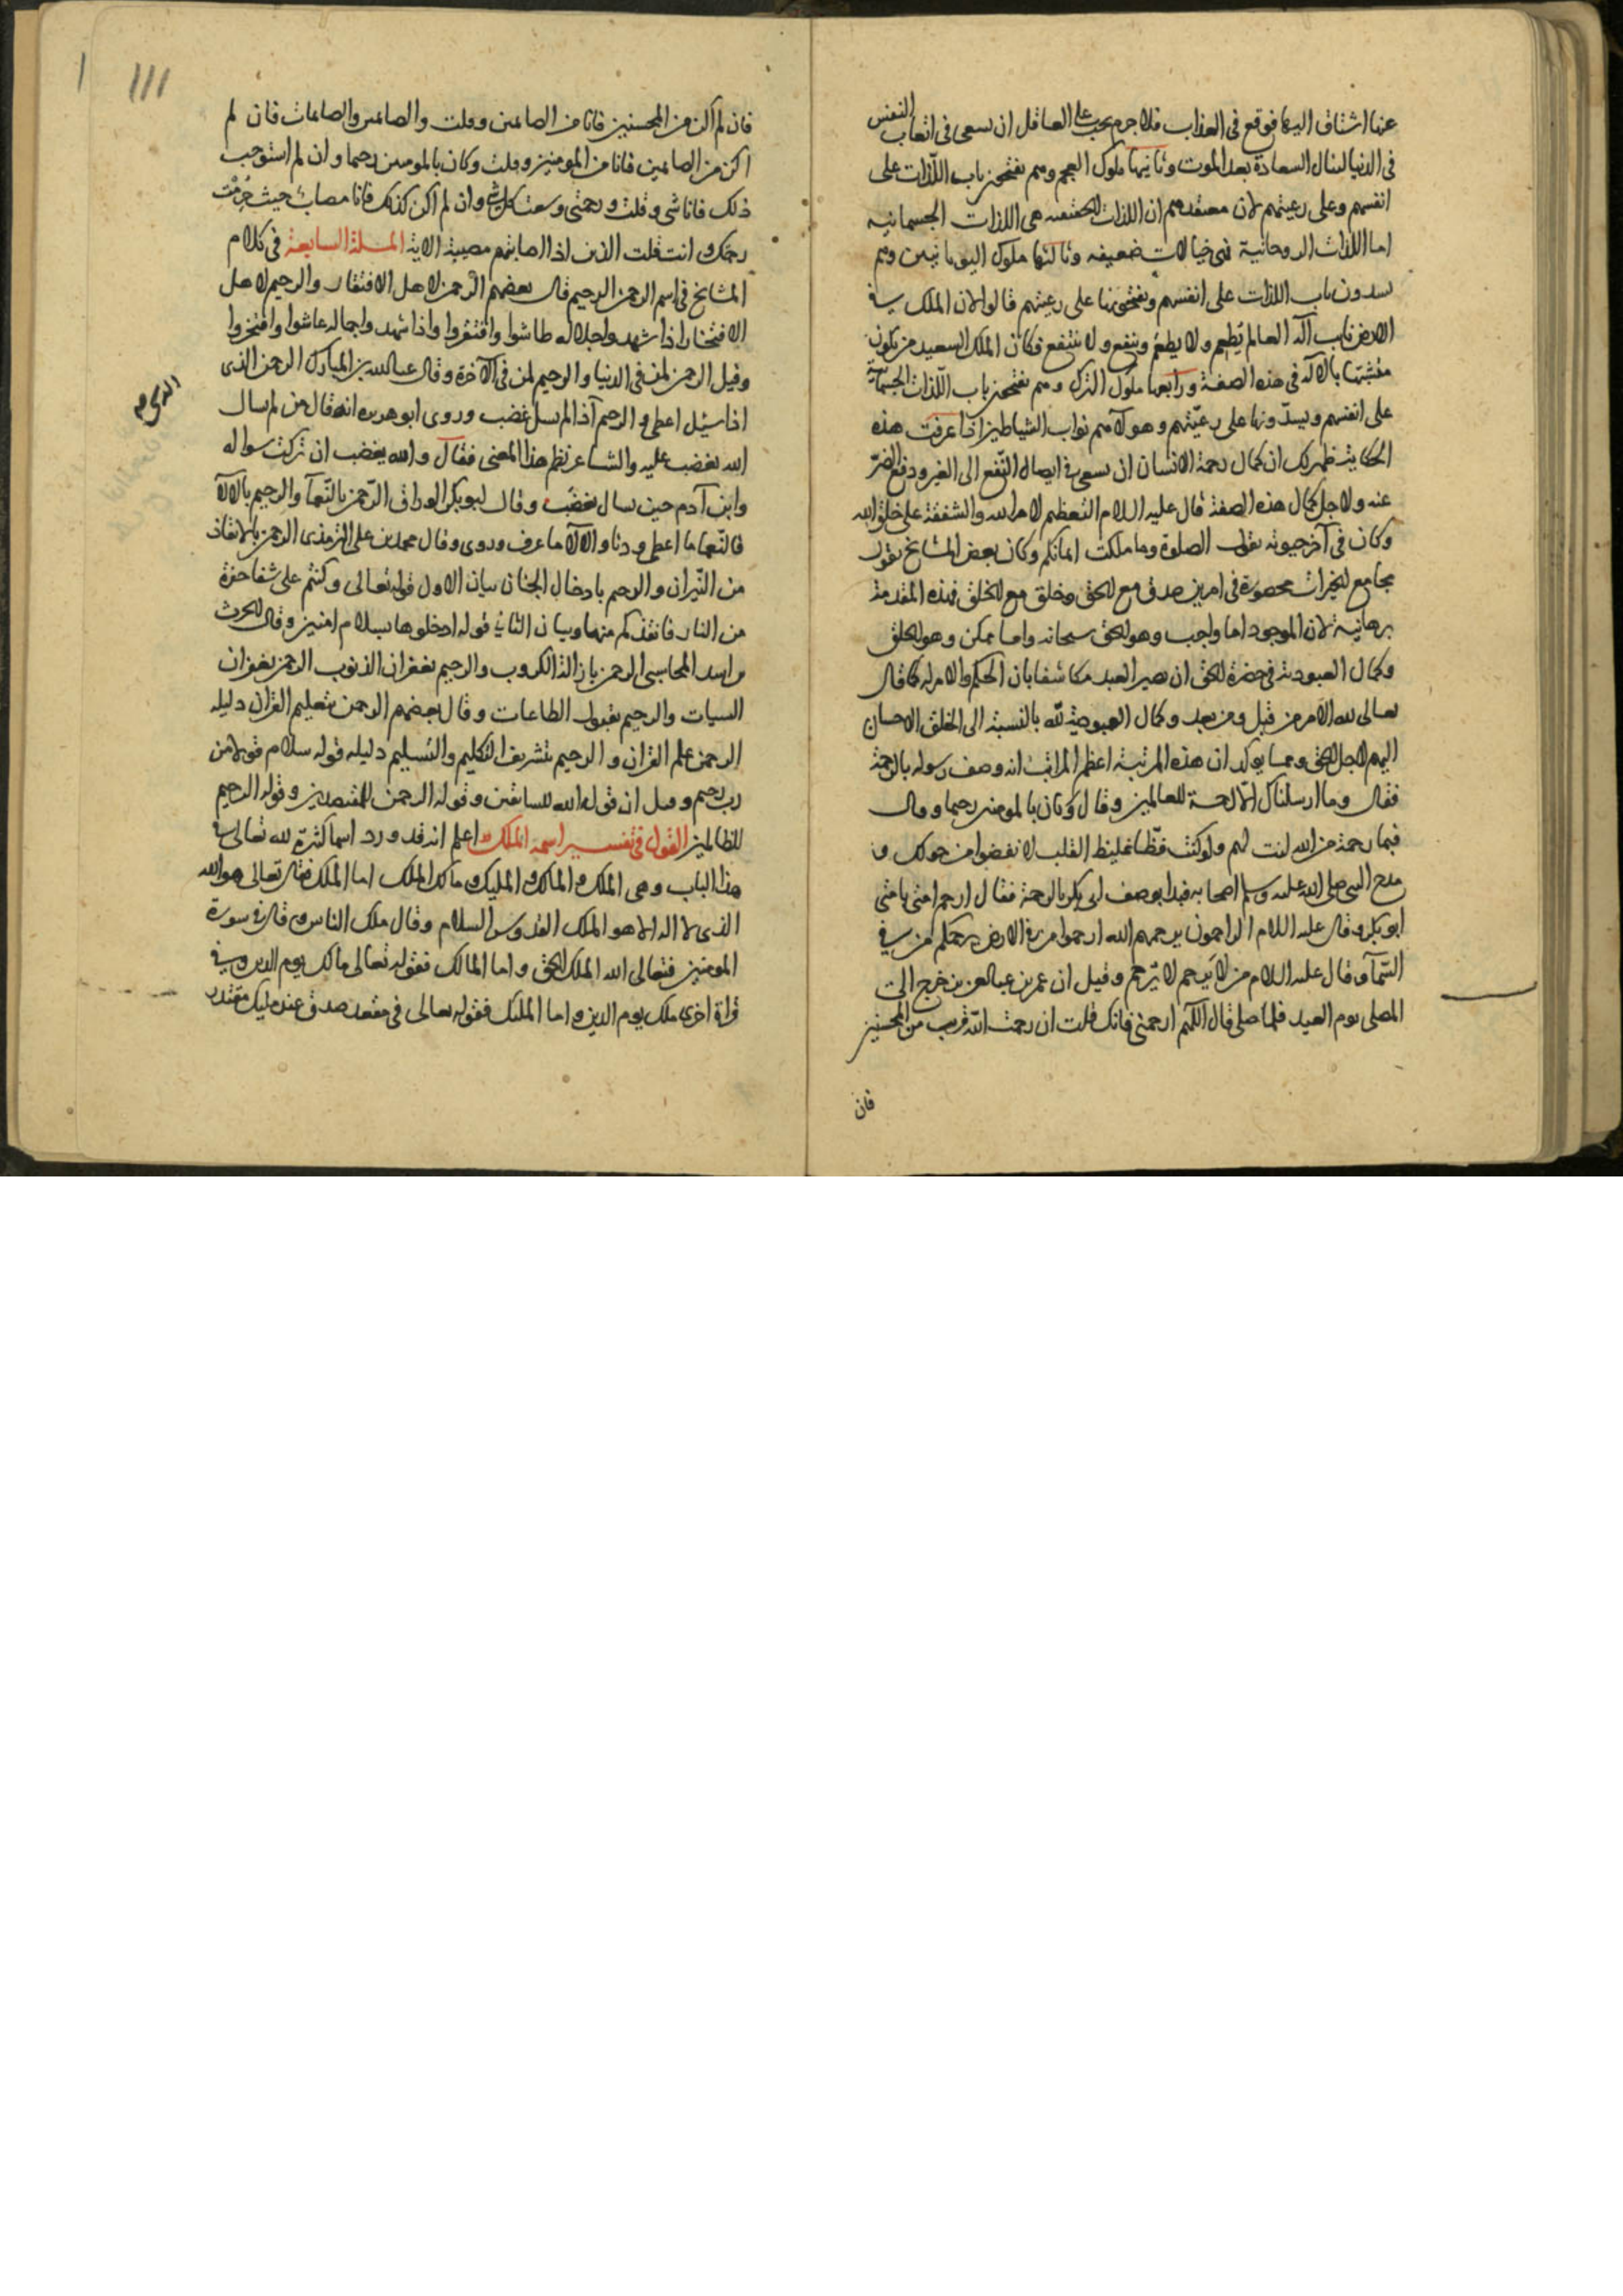 عنها اشتاق اليها فوقع فى العذاب فلا جرم يجب على العاقل ان يسعى فى اتعاب النفس
فى الدنيا لينال السعادة بعد الموت وثانيها ملوك العجم وهم يفتحون باب اللذات على
انفسهم وعلى رعيتهم لان معتقدهم ان اللذات الحقيقيه هى اللذات الجسمانيه
اما اللذات الروحانية فهى خيالات ضعيفه وثالثها ملوك اليونانيين وهم
يسدون باب اللذات على انفسهم ويفتحونها على رعيتهم قالوا لان الملك فى
الارض نايب اله العالم يطعم ولا يطعم وينفع ولا ينتفع فكان الملك السعيد من يكون
متشبها بالاله فى هذه الصفة ورابعها ملوك الترك وهم يفتحون باب اللذات الجسمانية
على انفسهم ويسدونها على رعيتهم وهولآ هم نواب الشياطين اذا عرفت هذه
الحكاية ظهر لك ان كمال رحمة الانسان ان يسعى فى ايصال النفع الى الغير ودفع الضر
عنه ولاجل كمال هذه الصفة قال عليه السلام التعظيم لامر الله والشفقة على خلق الله
وكان فى آخر حيوته يقول الصلوة وما ملكت ايمانكم وكان بعض المشايخ يقول
مجامع الخيرات محصورة فى امرين صدق مع الحق وخلق مع الخلق فهذه المقدمة
برهانية لان الموجود اما واجب وهو الحق سبحانه واما ممكن وهو الخلق
وكمال العبودية فى حضرة الحق ان يصير العبد مكاشفا بان الحكم والامر له كما قال
تعالى لله الامر من قبل ومن بعد وكمال العبودية لله بالنسبة الى الخلق الاحسان
اليهم لاجل الحق ومما يوكد ان هذه المرتبة اعظم المراتب انه وصف رسوله بالرحمة
فقال وما ارسلناك الا رحمة للعالمين وقال وكان بالمومنين رحيما وقال
فبما رحمة من الله لنت لهم ولو كنت فظا غليظ القلب لانفضوا من حولك و
مدح النبى صلى الله عليه وسلم اصحابه فبدا بوصف ابى بكر بالرحمة فقال ارحم امتى بامتى
ابو بكر وقال عليه السلام الراحمون يرحمهم الله ارحموا من فى الارض يرحمكم من فى
السمآ وقال عليه السلام من لا يرحم لا يرحم وقيل ان عمر بن عبد العزيز خرج الى
المصلى يوم العيد فلما صلى قال اللهم ارحمنى فانك قلت ان رحمت الله قريب من المحسنين
فان
١١١
فان لم اكن من المحسنين فانا من الصايمين وقلت والصايمين والصايمات فان لم
اكن من الصايمين فانا من المومنين وقلت وكان بالمومنين رحيما وان لم استوجب
ذلك فانا شى وقلت ورحمتى وسعت كل شى وان لم اكن كذلك فانا مصاب حيث حرمت
رحمتك وانت قلت الذين اذا اصابتهم مصيبة الاية المسلة السابعة فى كلام
المشايخ فى اسم الرحمن الرحيم قال بعضهم الرحمن لاهل الافتقار والرحيم لاهل
الافتخار اذا شهدوا جلاله طاشوا وافتقروا واذا شهدوا جماله عاشوا وافتخروا
وقيل الرحمن لمن فى الدنيا والرحيم لمن فى الآخرة وقال عبد الله بن المبارك الرحمن الذى
اذا سيل اعطى والرحيم آذا لم يسل غضب وروى ابو هريره انه قال من لم يسال
الله يغضب عليه والشاعر نظم هذا المعنى فقال والله يغضب ان تركت سواله
وابن آدم حين يسال يغضب وقال ابو بكر الوراق الرحمن بالنعمآ والرحيم بالالآ
فالنعما ما اعطى وحبا والالآ ما عرف وزوى وقال محمد بن على الترمذى الرحمن بالانقاذ
من النيران والرحيم بادخال الجنان بيان الاول قوله تعالى وكنتم على شفا حفرة
من النار فانقذكم منها وبيان الثانى قوله ادخلوها بسلام امنين وقال الحرث
بن اسد المحاسبى الرحمن بازالة الكروب والرحيم بغفران الذنوب الرحمن بغفران
السيات والرحيم بقبول الطاعات وقال بعضهم الرحمن بتعليم القران دليله
الرحمن علم القران والرحيم بتشريف التكليم والتسليم دليله قوله سلام قولا من
رب رحيم وقيل ان قوله الله للسابقين وقوله الرحمن للمقتصدين وقوله الرحيم
للظالمين القول فى تفسير اسمه الملك اعلم انه قد ورد اسما كثيرة لله تعالى فى
هذا الباب وهى الملك والمالك والمليك ومالك الملك اما الملك فقال تعالى هو الله
الذى لا اله الا هو الملك القدوس السلام وقال ملك الناس وقال فى سورة
المومنين فتعالى الله الملك الحق واما المالك فقوله تعالى مالك يوم الدين وفى
قراة اخرى ملك يوم الدين واما المليك فقوله تعالى فى مقعد صدق عند مليك مقتدر